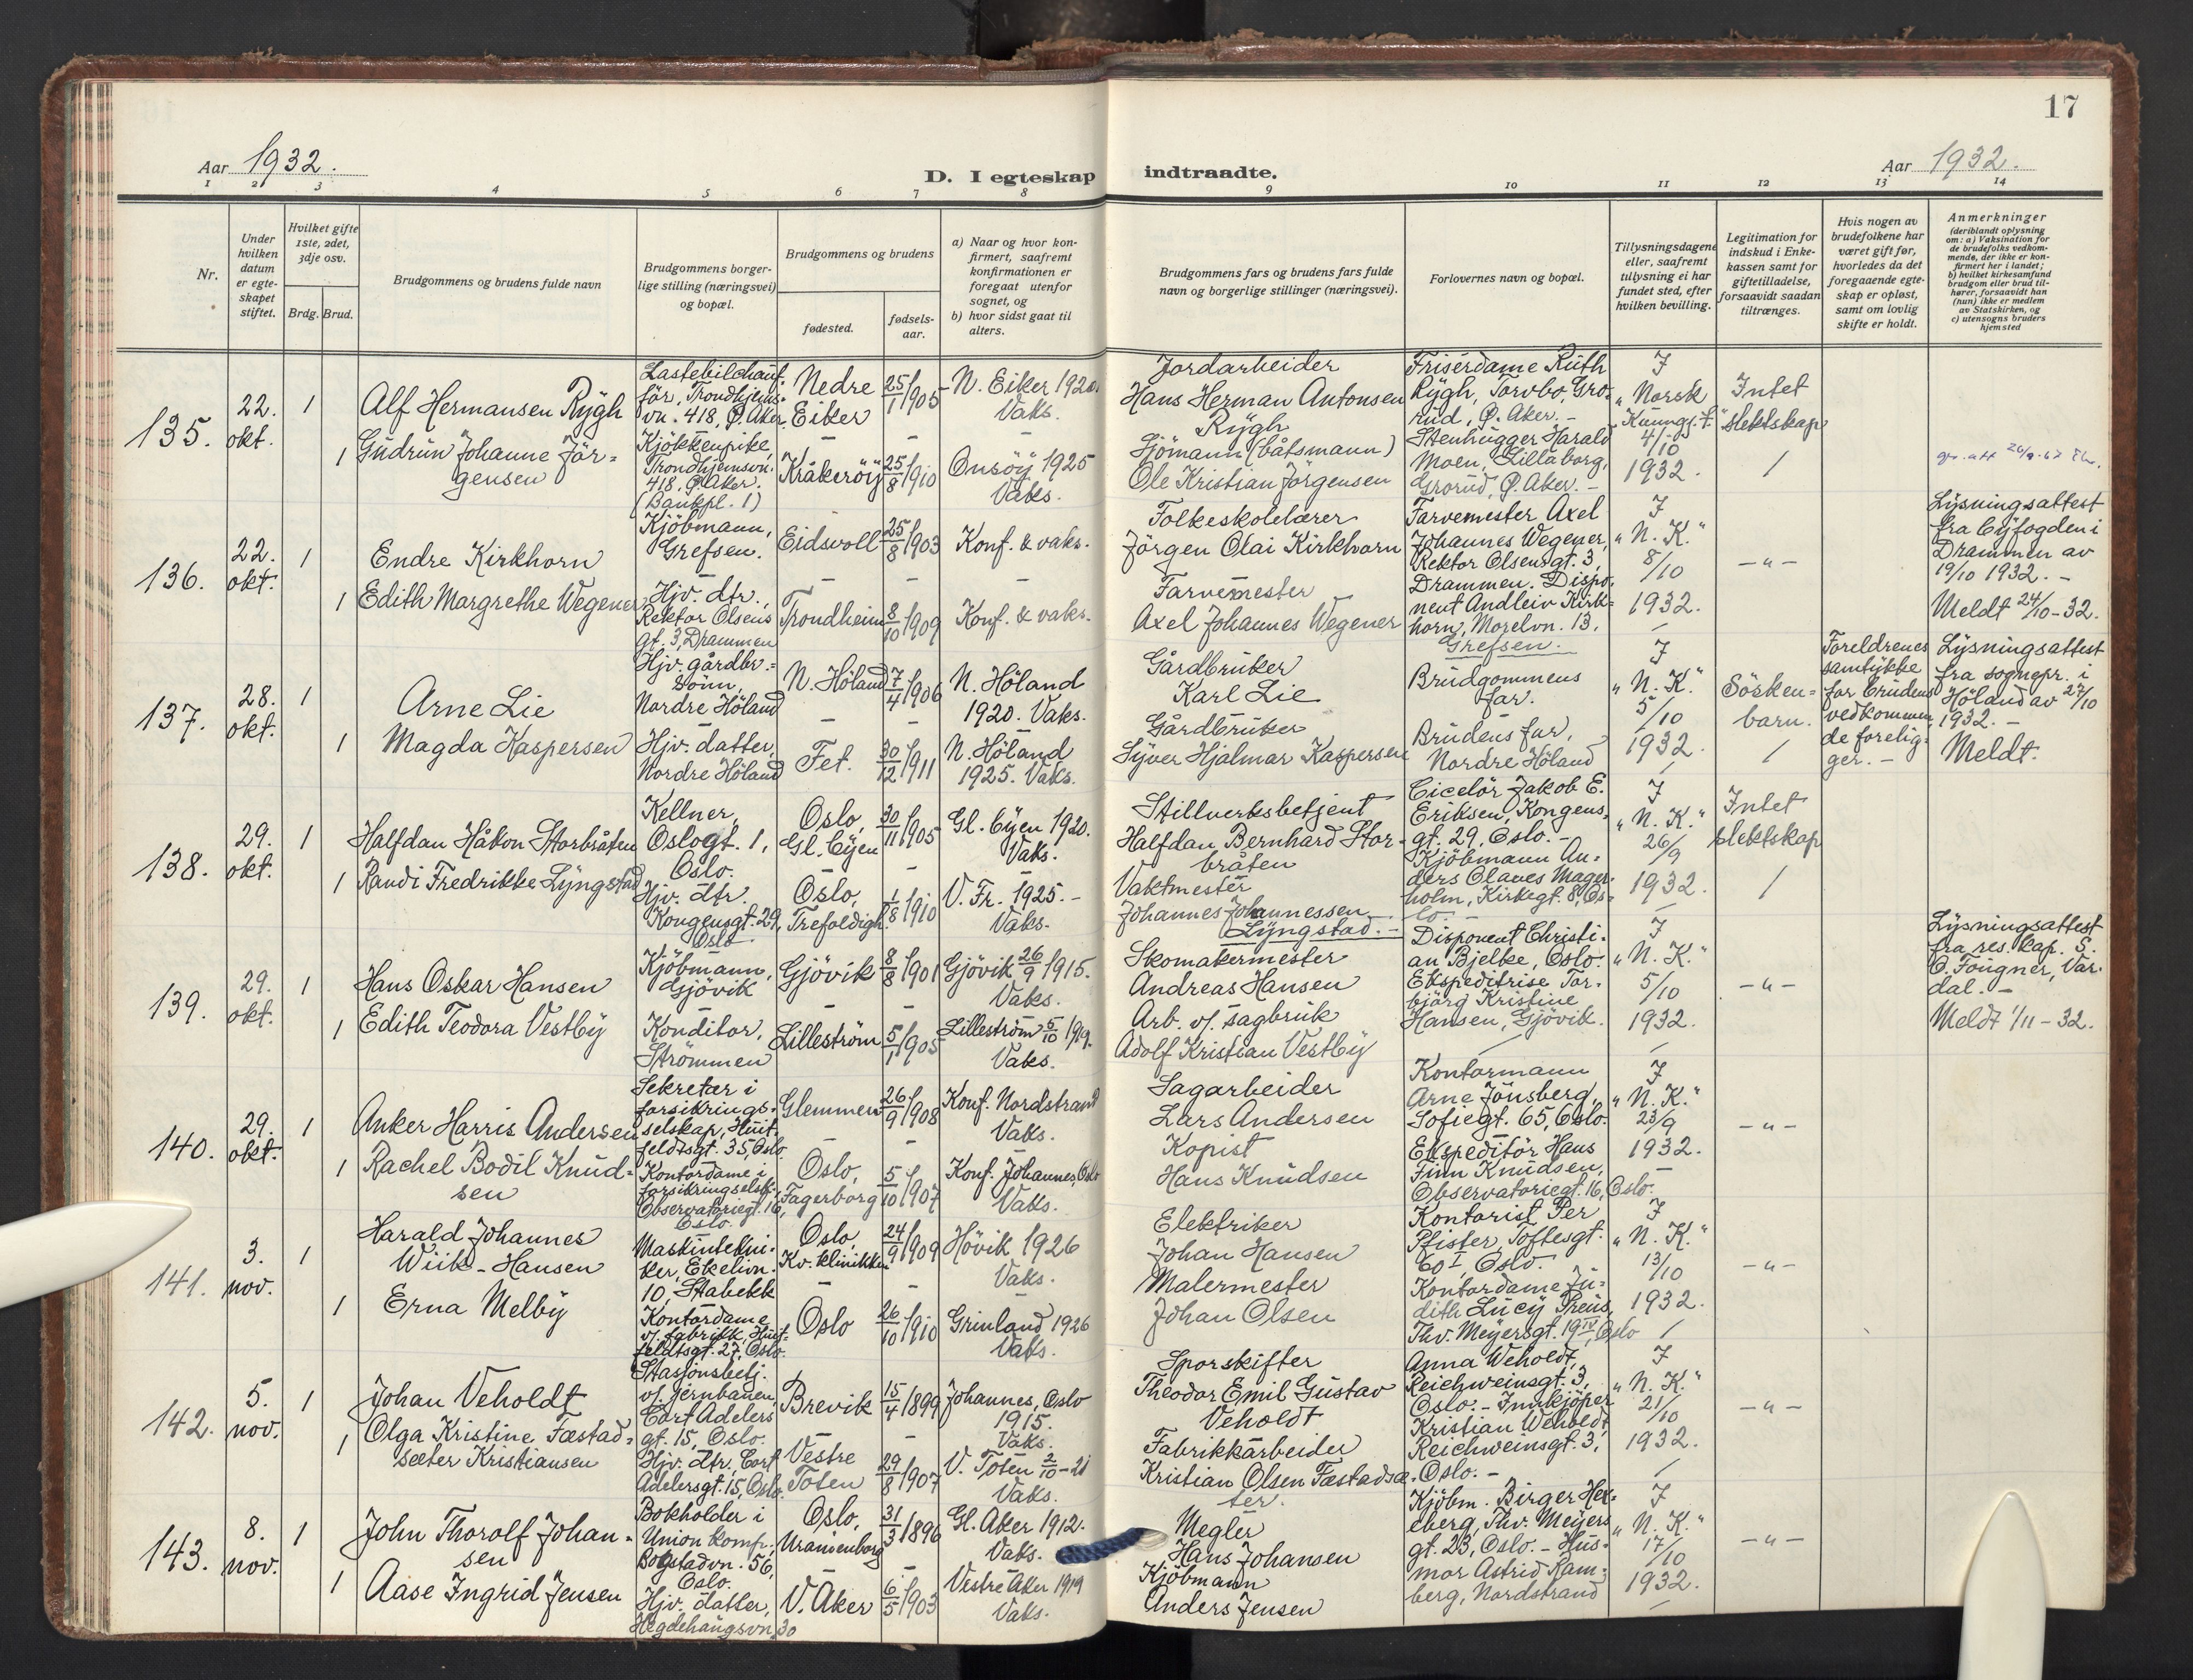 17
Aar 1932.
D. I egteskap indtraadte.
Aar 1932.
1 2 3 4 5 6 7 8 9 10 11 12 13 14
Nr.
Under hvilken datum er egteskapet stiftet.
Hvilket gifte 1ste, 2det, 3dje osv.
Brdg. Brud.
Brudgommens og brudens fulde navn
Brudgommens borgerlige stilling (næringsvei) og bopæl.
Brudgommens og brudens
fødested.
fødselsaar.
a) Naar og hvor konfirmert, saafremt konfirmationen er foregaat utenfor sognet, og
b) hvor sidst gaat til alters.
Brudgommens fars og brudens fars fulde navn og borgerlige stillinger (næringsvei).
Forlovernes navn og bopæl.
Tillysningsdagene eller, saafremt tillysning ei har fundet sted, efter hvilken bevilling.
Legitimation for indskud i Enkekassen samt for giftetilladelse, forsaavidt saadan tiltrænges.
Hvis nogen av brudefolkene har været gift før, hvorledes da det foregaaende egteskap er opløst, samt om lovlig skifte er holdt.
Anmerkninger
(deriblandt oplysning om: a) Vaksination for de brudefolks vedkommende, der ikke er konfirmert her i landet; b) hvilket kirkesamfund brudgom eller brud tilhører, forsaavidt han (hun) ikke er medlem av Statskirken, og c) utensogns bruders hjemsted
135. 22. okt. 1
Alf Hermansen Rygh
Lastebilchauffør, Trondhjemsvn. 418, Ø. Aker.
Nedre Eiker
25/1 1905
N. Eiker 1920. Vaks.
Jordarbeider
Hans Herman Antonsen Rygh
Friserdame Ruth Rygh, Torvbo, Grorud, Ø. Aker. -
I "Norsk Kunngj.t." 4/10 1932.
Intet slektskap
1 Gudrun Johanne Jörgensen
Kjøkkenpike, Trondhjemsvn. 418, Ø. Aker. (Bankpl. 1)
Kråkeröy
25/8 1910
Onsöy 1925 Vaks.
Sjömann (båtsmann)
Ole Kristian Jörgensen
Stenhugger Harald Moen, Lillaborg, Grorud, Ø. Aker. -
136. 22. okt. 1
Endre Kirkhorn
Kjöbmann, Grefsen.
Eidsvoll
25/8 1903
Konf. & vaks.
Folkeskolelærer
Jörgen Olai Kirkhorn
Farvemester Axel Johannes Wegener, Rektor Olsensgt. 3, Drammen. Disponent Andleiv Kirkhorn, Morelvn. 13, Grefsen.
I "N. K." 8/10 1932.
- " -
Lysningsattest fra byfogden i Drammen av 19/10 1932. -
Meldt 24/10-32.
1 Edith Margrethe Wegener
Hjv. dtr., Rektor Olsens gt. 3, Drammen
Trondheim
8/10 1909
Konf. & vaks.
Farvemester
Axel Johannes Wegener
137. 28. okt. 1
Arne Lie
Hjv. gårdbr. sönn, Nordre Höland
N. Höland
7/4 1906
N. Höland 1920. Vaks.
Gårdbruker
Karl Lie
Brudgommens far.
I "N. K." 5/10 1932.
Söskenbarn.
Foreldrenes samtykke for brudens vedkommende foreligger. -
Lysningsattest fra sognepr. i Höland av 27/10 1932. -
Meldt.
1 Magda Kaspersen
Hjv. datter, Nordre Höland
Fet.
30/12 1911
N. Höland 1925. Vaks.
Gårdbruker
Syver Hjalmar Kaspersen
Brudens far, Nordre Höland
138. 29. okt. 1
Halfdan Håkon Storbråten
Kellner, Oslogt. 1, Oslo.
Oslo, Gl. byen
30/11 1905
Gl. byen 1920. Vaks.
Stillverksbetjent
Halfdan Bernhard Storbråten
Ciselör Jakob E. Eriksen, Kongensgt. 29, Oslo. -
I "N. K." 26/9 1932.
Intet slektskap
1 Randi Fredrikke Lyngstad
Hjv. dtr. Kongensgt. 29, Oslo
Oslo, Trefoldigh.
1/8 1910
V. Fr. 1925. - Vaks.
Vaktmester
Johannes Johannessen Lyngstad. -
Kjöbmann Anders Olaves Magerholm, Kirkegt. 8, Oslo. -
139. 29. okt. 1
Hans Oskar Hansen
Kjöbmann, Gjövik
Gjövik
8/8 1901
Gjövik 26/9 1915. Vaks.
Skomakermester
Andreas Hansen
Disponent Christian Bjelke, Oslo.
I "N. K." 5/10 1932.
- " -
Lysningsattest fra res. kap. S. O. Fougner, Vardal. -
Meldt 1/11-32.
1 Edith Teodora Vestby
Konditor, Strömmen
Lilleström
5/1 1905
Lilleström 5/10 1919. Vaks.
Arb. v/ sagbruk
Adolf Kristian Vestby
Ekspeditrise Torbjörg Kristine Hansen, Gjövik.
140. 29. okt. 1
Anker Harris Andersen
Sekretær i forsikringsselskap, Huitfeldtsgt. 35, Oslo.
Glemmen
26/9 1908
Konf. Nordstrand Vaks.
Sagarbeider
Lars Andersen
Kontormann Arne Jönsberg, Sofiegt. 65, Oslo.
I "N. K." 23/9 1932.
- " -
1 Rachel Bodil Knudsen
Kontordame i forsikringselsk. Observatoriegt. 16, Oslo.
Oslo, Fagerborg
5/10 1907
Konf. Johannes, Oslo Vaks.
Kopist
Hans Knudsen
Ekspeditör Hans Finn Knudsen, Observatoriegt. 16, Oslo.
141. 3. nov. 1
Harald Johannes Wiik-Hansen
Maskintekniker, Ekelivn. 10, Stabekk
Oslo, Kv. klinikken
24/9 1909
Hövik 1926 Vaks.
Elektriker
Johan Hansen
Kontorist Per Pfister, Toftesgt. 60 I, Oslo.
I "N. K." 13/10 1932.
- " -
1 Erna Melby
Kontordame v/ fabrikk, Huitfeldtsgt. 27, Oslo.
Oslo
26/10 1910
Grinland 1926 Vaks.
Malermester
Johan Olsen
Kontordame Judith Lucy Preus, Thv. Meyersgt. 19 IV, Oslo
142. 5. nov. 1
Johan Veholdt
Stasjonsbetj. v/ jernbanen, Cort Adelers gt. 15, Oslo.
Brevik
15/4 1899
Johannes, Oslo 1915. Vaks.
Sporskifter
Theodor Emil Gustav Veholdt
Anna Weholdt, Reichweinsgt. 3, Oslo. - Innkjöper Kristian Weholdt, Reichweinsgt. 3, Oslo. -
I "N. K." 21/10 1932.
- " -
1 Olga Kristine Fæstadsæter Kristiansen
Hjv. dtr, Cort Adelersgt. 15, Oslo.
Vestre Toten
29/8 1907
V. Toten 2/10-21 Vaks.
Fabrikkarbeider
Kristian Olsen Fæstadsæter.
143. 8. nov. 1
John Thorolf Johansen
Bokholder i Union komp., Bogstadvn. 56, Oslo.
Oslo, Uranienborg
31/3 1896
Gl. Aker 1912. Vaks.
Megler
Hans Johansen
Kjöbm. Birger Hekeberg, Thv. Meyers gt. 23, Oslo. - Husmor Astrid Ramberg, Nordstrand
I "N. K." 17/10 1932.
- " -
1 Aase Ingrid Jensen
Hjv. datter, Hegdehaugsvn. 30
V. Aker
6/5 1903
Vestre Aker 1919 Vaks.
Kjöbmann
Anders Jensen